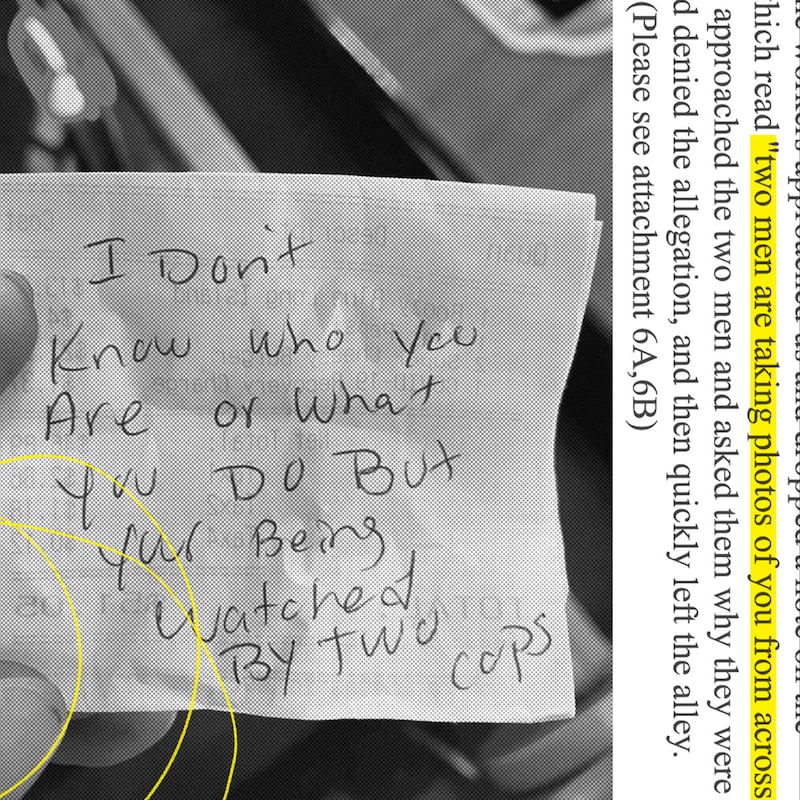 I Don't
Know who you
Are or what
you DO But
your Being
watched
BY two cops
workers approached us and dropped a note on the
hich read "two men are taking photos of you from across
approached the two men and asked them why they were
d denied the allegation, and then quickly left the alley.
(Please see attachment 6A,6B)